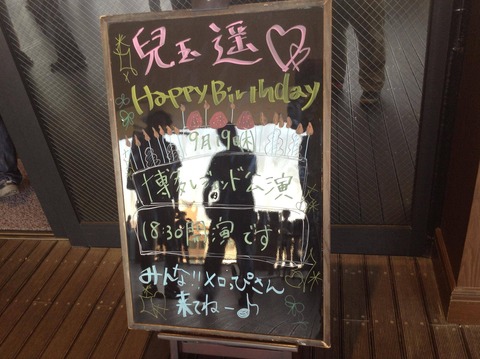 兒玉遥♡
Happy Birthday
9月19日(木)
博多レジェンド公演
18:30開演です
みんな!!メロぴさん
来てねー♪